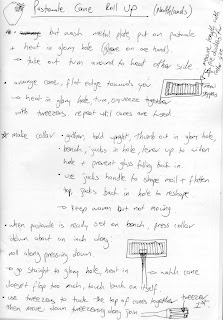 Pastorale Cane Roll Up (Northlands)
but wash metal plate, put on pastorale
+ heat in glory hole (glove on one hand)
→ take out turn around to heat other side
• arrange cane, flat edge towards you
→ heat in glory hole, turn, squeeze together
with tweezers, repeat until canes are fused
make collar • gather, hold upright, thumb out in glory hole,
• bench, jacks in hole, lever up to widen
hole + prevent glass falling back in
• use jacks handle to shape moil + flatten
top, jacks back in hole to reshape
→ keep warm but not moving
• when pastorale is ready, set on bench, press collar
down about an inch along
roll along pressing down
→ go straight to glory hole, heat in → watch cane
doesn't flop too much, touch back on itself.
• use tweezers to tack the top of canes together
then move down tweezering along join
tweezer